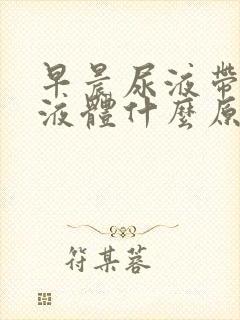 早晨尿液帶
液體什麼原
符某蓉